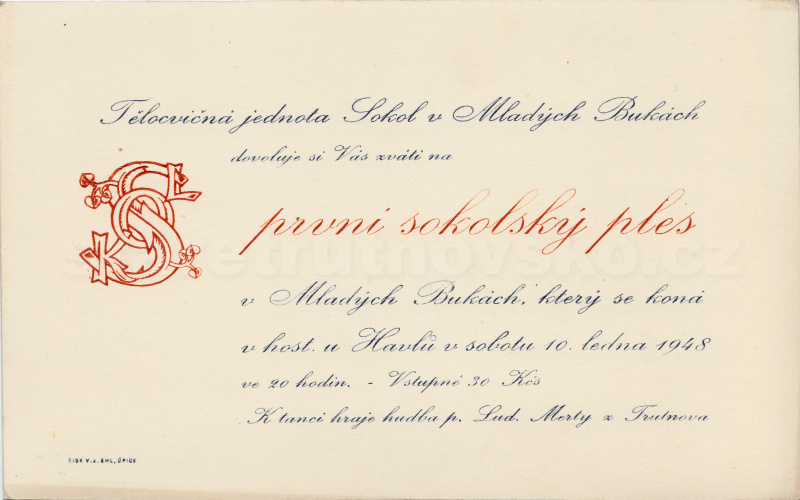 Tělocvičná jednota Sokol v Mladých Bukách
dovoluje si Vás zváti na
první sokolský ples
v Mladých Bukách, který se koná
v host. u Havlů v sobotu 10. ledna 1948
ve 20 hodin. - Vstupné 30 Kčs
K tanci hraje hudba p. Lud. Merty z Trutnova
TISK V. J. EHL, ÚPICE